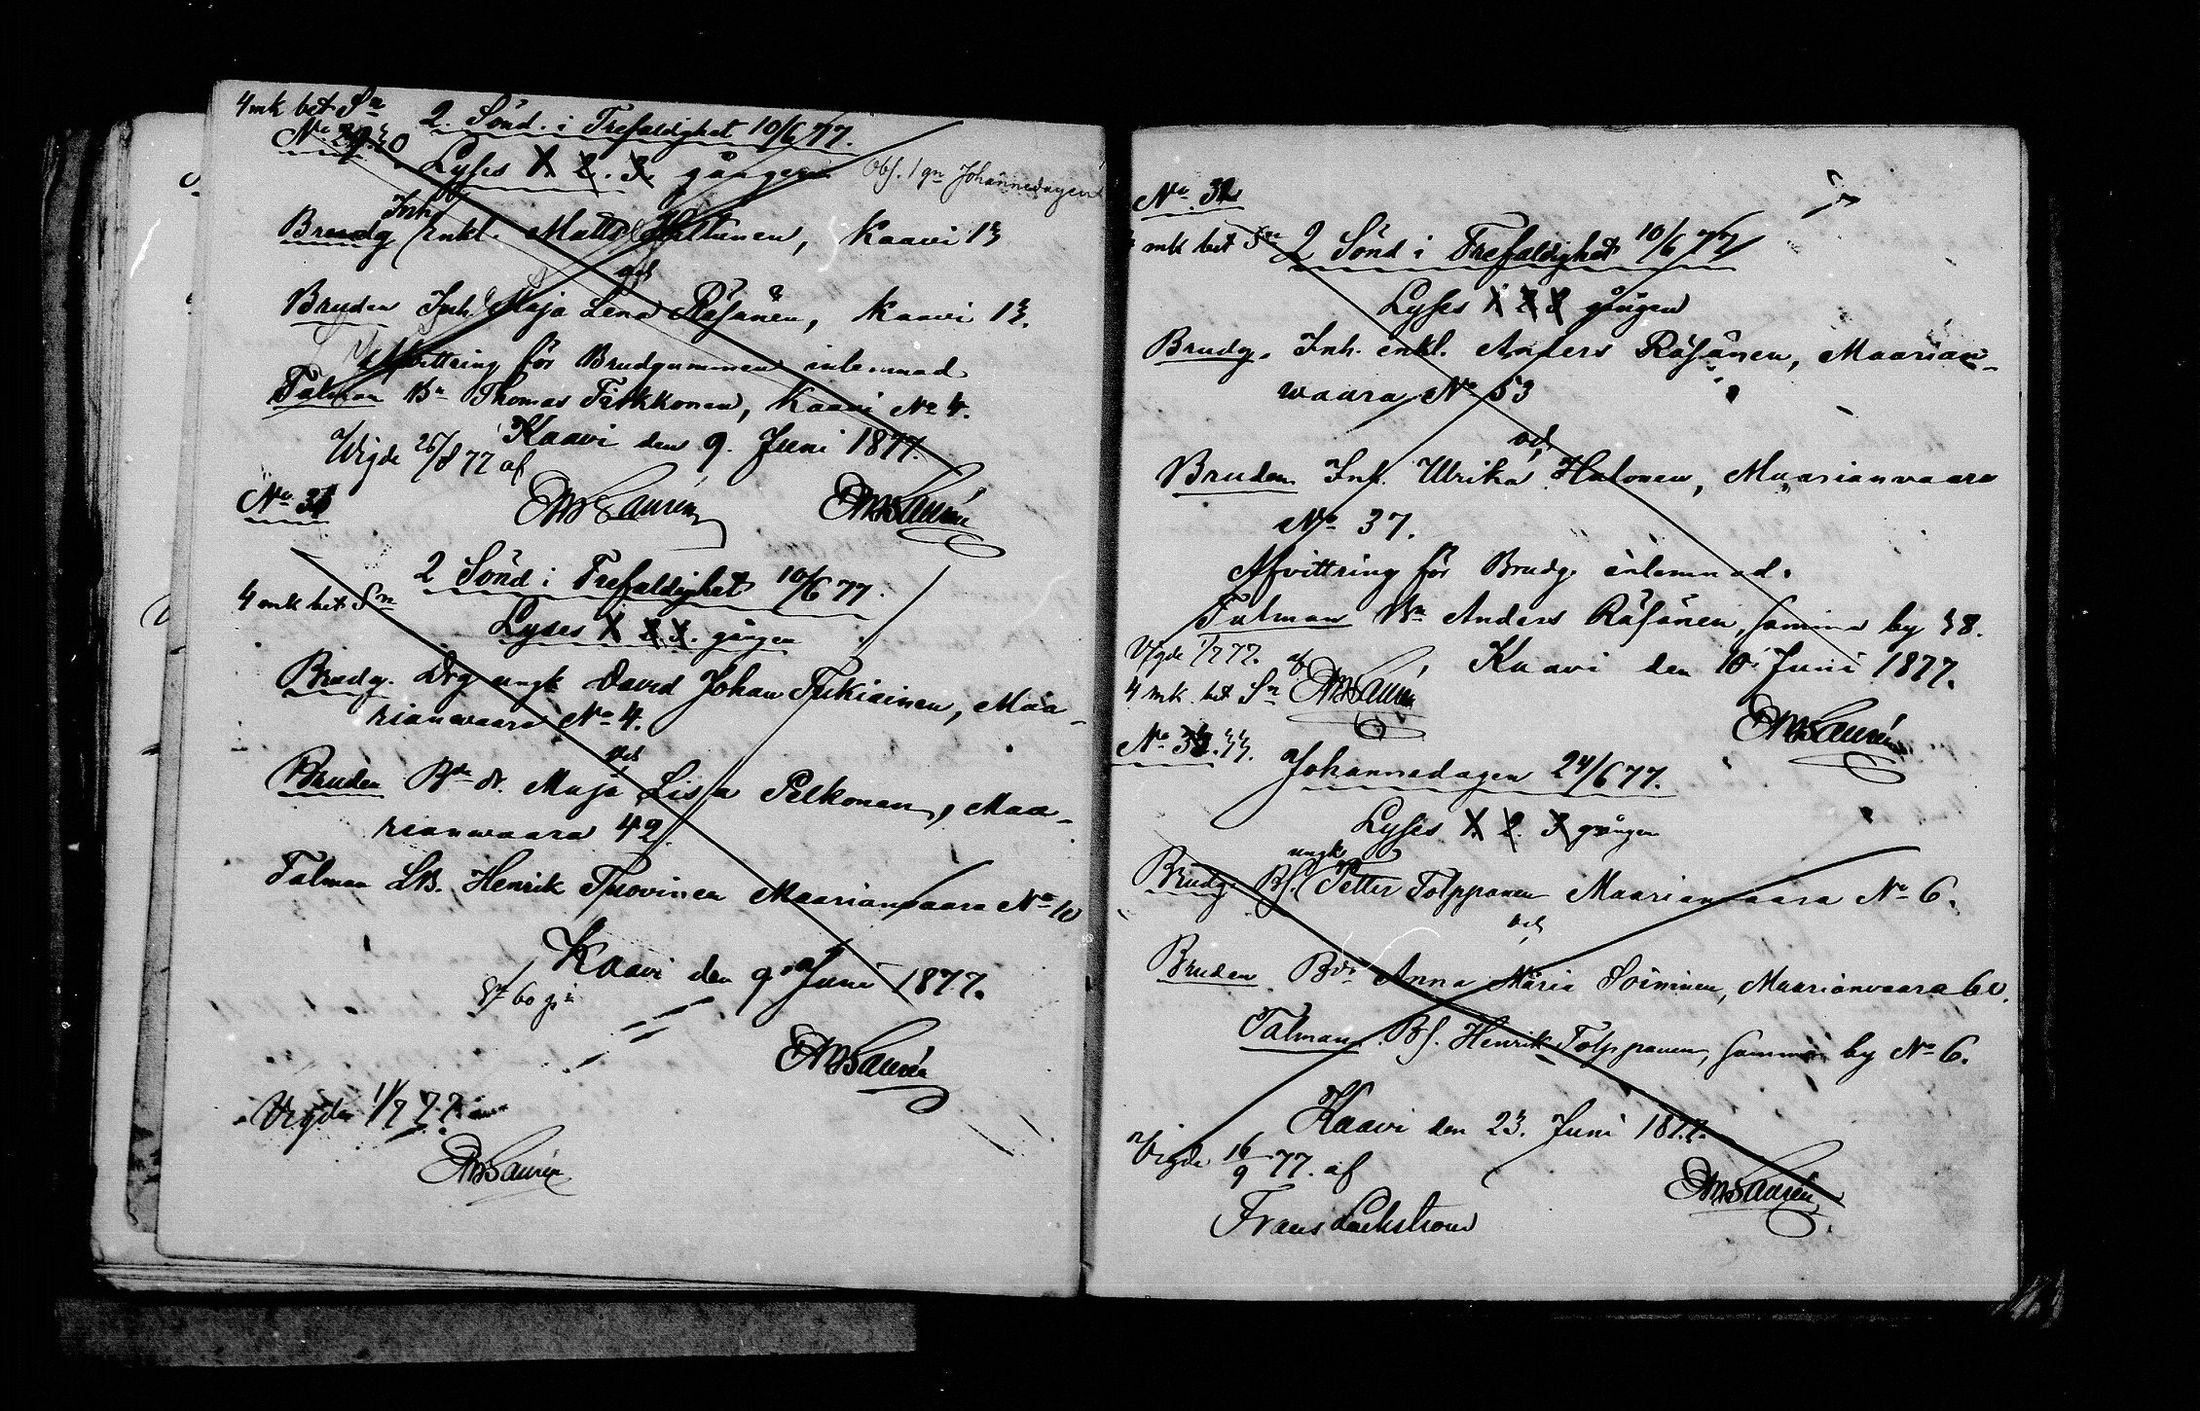 4 mk bet Sn
No 30
2. Sönd. i Trefaldighet 10/6 77.
Lyses 1. 2. 3. gången
Obs. 1 gn Johannedagen
Inh
Brudg enkl. Matts Kaavi 13
och
Bruden Inh. Maja Lena Räsänen, Kaavi 13.
Afvittring för Brudgummen inlemnad
Talman Bn Thomas Kaavi No 4.
Kaavi den 9. Juni 1877.
Wigde 26/8 77 af
AWSaurén
AWSaurén
No 31
2 Sönd i Trefaldighet 10/6 77.
4 mk bet Sn
Lyses 1 2. 3. gången
Brudg. Drg ungk David Johan Tukiainen, Maa-
rianwaara No 4.
och
Bruden Bde dr. Maja Lisa Pelkonen, Maa-
rianwaara 42.
Talman LB. Henrik Tuovinen Maarianvaara No 10
Kaavi den 9 Juni 1877.
60 pi
AWSaurén
Vigde 1/7 77.
AWSaurén
No 32
mk bet Sn
2 Sönd i Trefaldighet 10/6 77
Lyses 1 2 3 gången
Brudg. Inh. enkl. Anders Räsänen, Maarian-
waara No 53
och
Bruden Inh. Ulrika Halonen, Maarianvaara
No 37.
Afvittring för Brudg. inlemnad.
Talman Bn Anders Räsänen, samma by 38.
Vigde 1/7 77. af
Kaavi den 10 Juni 1877.
4 mk. bet Sn
AWSaurén
AWSaurén
No 33.
Johannedagen 24/6 77.
Lyses 1. 2. 3 gången
ungk
Brudg. Bs. Petter Tolppanen Maarianvaara No 6.
och
Bruden Bdr Anna Maria Soininen, Maarianvaara 60.
Talman Bs. Henrik Tolppanen, samma by No 6.
Kaavi den 23. Juni 1877.
Vigde 16/9 77. af
AWSaurén
Frans Lackström